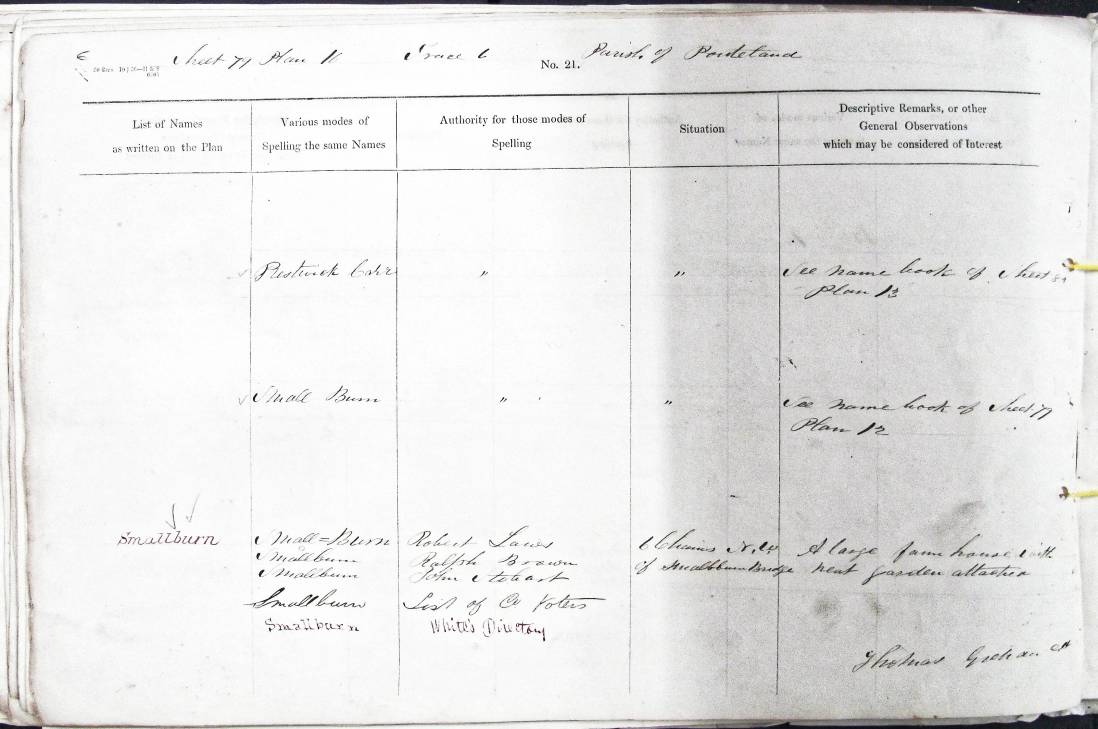 Sheet 77 Plan 16 Trace 6 No. 21. Parish of Ponteland
List of Names as written on the Plan
Various modes of Spelling the same Names
Authority for those modes of Spelling
Situation
Descriptive Remarks, or other General Observations which may be considered of Interest
Prestwick Carr " " See name book of Sheet
Plan 13
Small Burn " " See name book of Sheet 77
Plan 12
Smallburn Small=Burn Robert Laws 6 Chains N.W. A large farm house with
Smallburn Ralph Brown of Smallburn Bridge neat garden attached
Smallburn John Stobart
Smallburn List of Co Voters
Smallburn White's Directory
Thomas